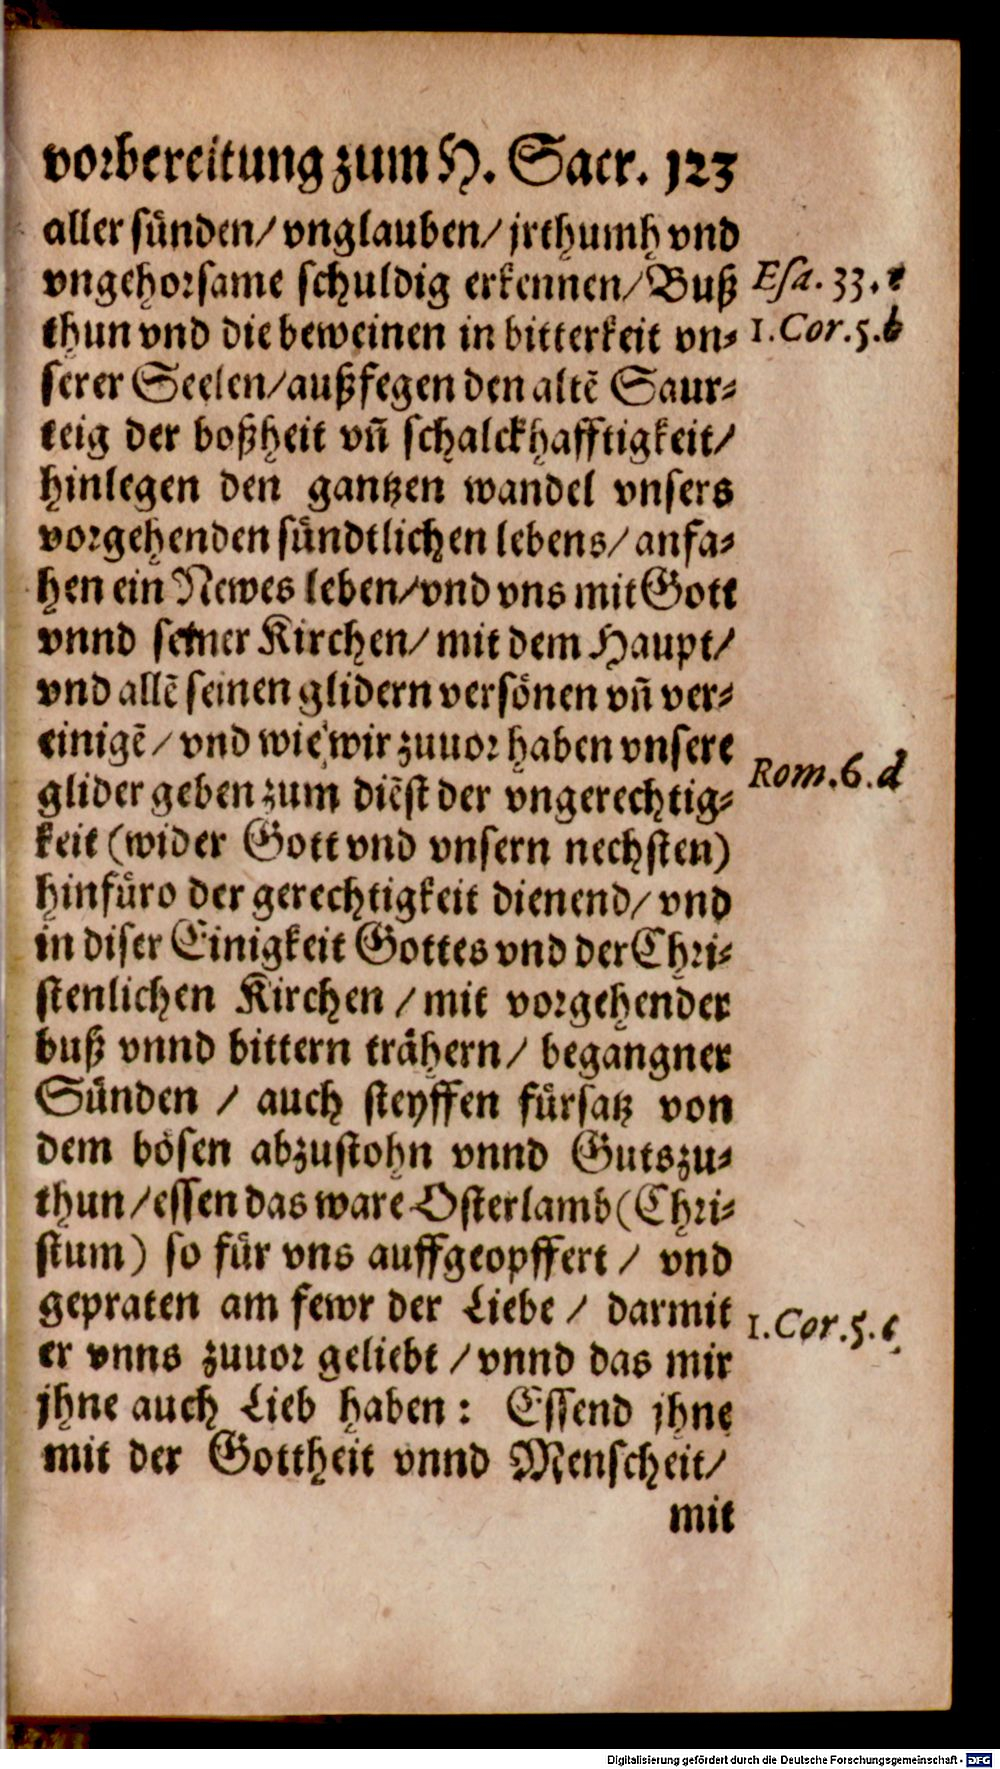 vorbereitung zum H. Sacr. 123
aller sünden/ vnglauben/ jrthumh vnd
vngehorsame schuldig erkennen/ Buß
Esa. 33.
thun vnd die beweinen in bitterkeit vn-
1. Cor. 5. b
serer Seelen/ außfegen den altē Saur-
teig der boßheit vñ schalckhafftigkeit/
hinlegen den gantzen wandel vnsers
vorgehenden sündtlichen lebens/ anfa-
hen ein Newes leben/ vnd vns mit Gott
vnnd seiner Kirchen/ mit dem Haupt/
vnd allē seinen glidern versönen vñ ver-
einigē/ vnd wie wir zuuor haben vnsere
Rom. 6. d
glider geben zum diēst der vngerechtig-
keit (wider Gott vnd vnsern nechsten)
hinfüro der gerechtigkeit dienend/ vnd
in diser Einigkeit Gottes vnd der Chri-
stenlichen Kirchen / mit vorgehender
buß vnnd bittern trähern/ begangner
Sünden / auch steyffen fürsatz von
dem bösen abzustohn vnnd Guts zu-
thun/ essen das ware Osterlamb (Chri-
stum) so für vns auffgeopffert / vnd
gepraten am fewr der Liebe / darmit
1. Cor. 5. c
er vnns zuuor geliebt / vnnd das mir
jhne auch Lieb haben: Essend jhne
mit der Gottheit vnnd Menscheit/
mit
Digitalisierung gefördert durch die Deutsche Forschungsgemeinschaft - DFG